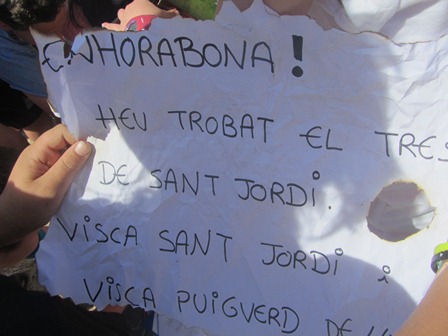 ENHORABONA!
HEU TROBAT EL TRES
DE SANT JORDI.
VISCA SANT JORDI i
VISCA PUIGVERD DE